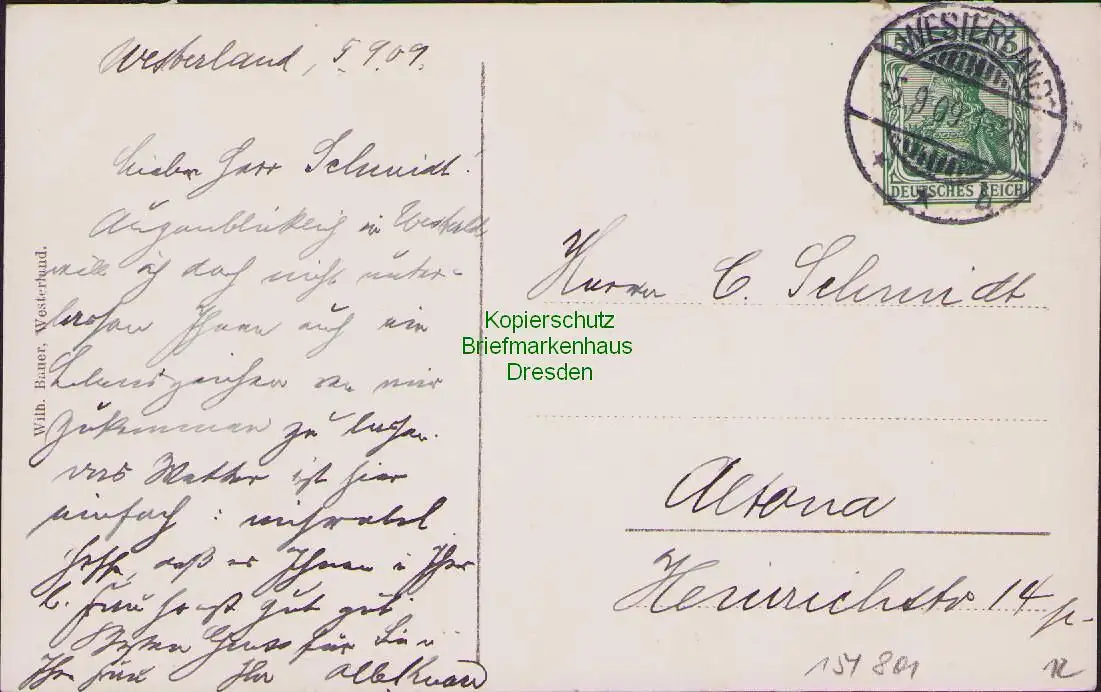 Westerland, 5.9.09.
Lieber Herr Schmidt!
Augenblicklich in Westerld
will ich doch nicht unter-
lassen Ihnen auch ein
Lebenszeichen von mir
zukommen zu lassen.
Das Wetter ist hier
einfach : miserabel
hoffe, daß es Ihnen u Ihrer
l. Frau sonst gut geht.
Besten Gruss für Sie u
Ihre Frau Ihr
Wilh. Bauer, Westerland.
WESTERLAND
5.9.09
b
DEUTSCHES REICH
Herrn C. Schmidt
Altona
Heinrichstr 14 p.
Kopierschutz
Briefmarkenhaus
Dresden
151 801